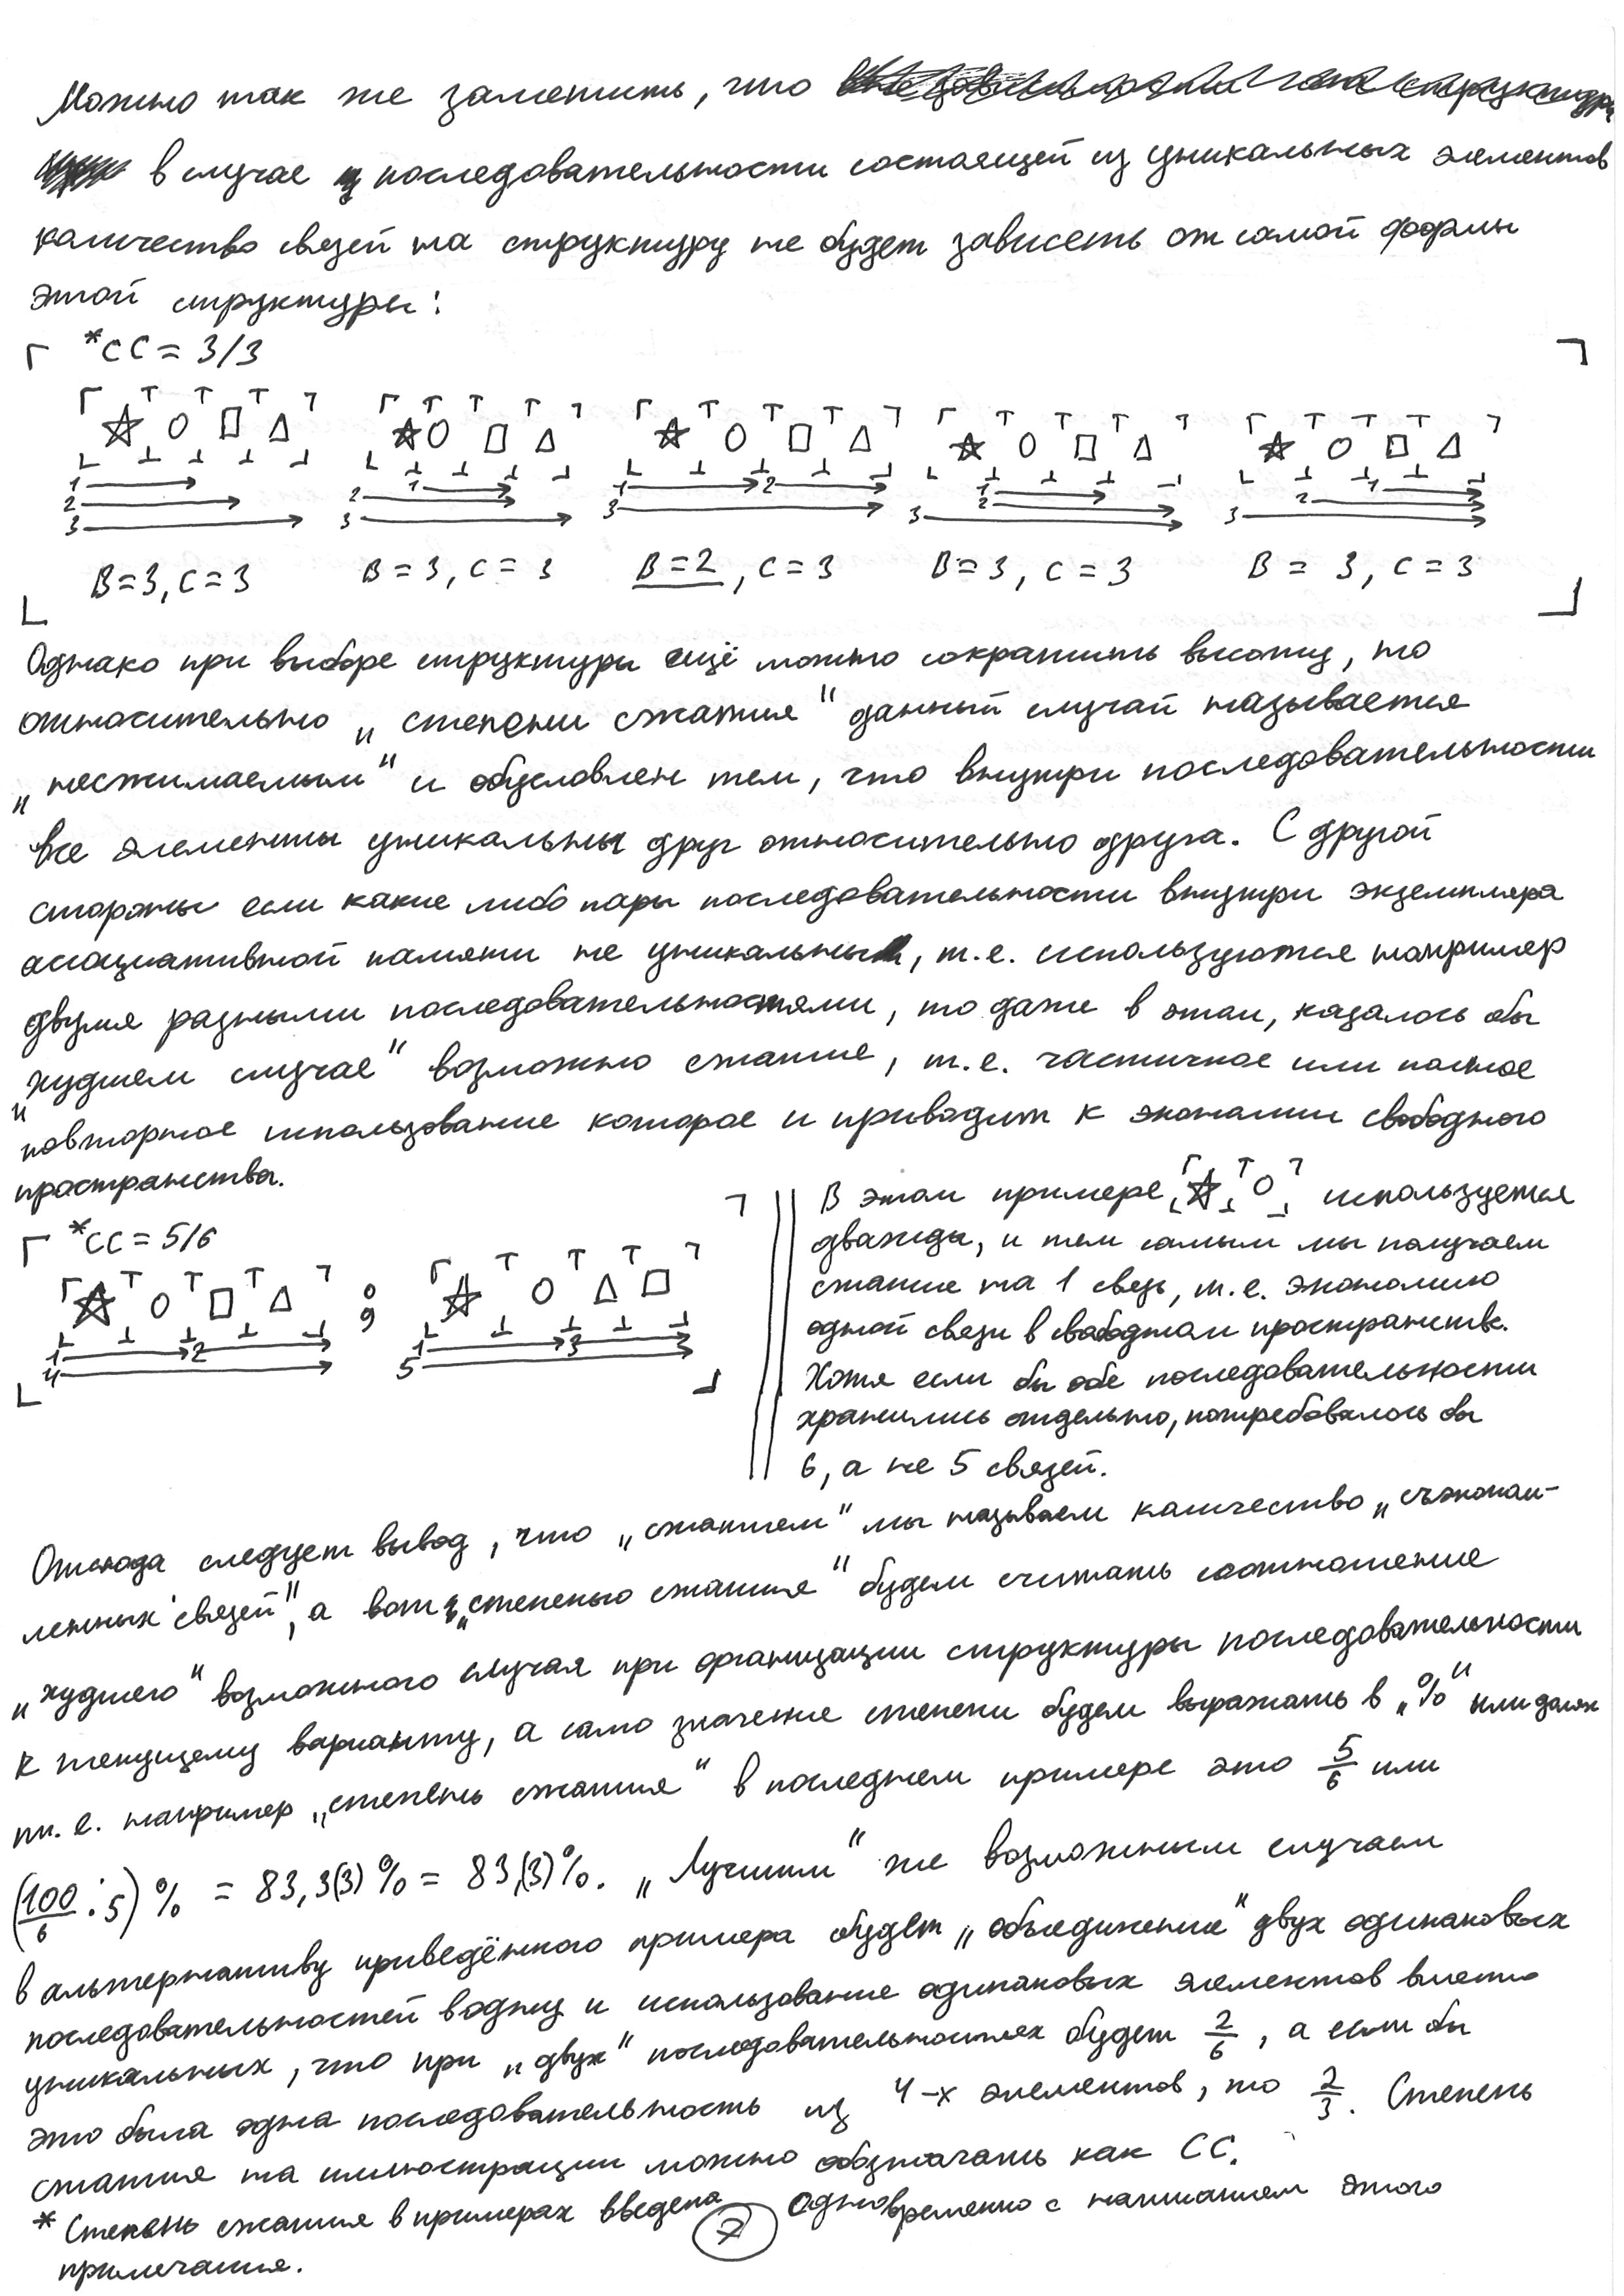 Можно так же заметить, что
в случае последовательности состоящей из уникальных элементов
количество связей на структуру не будет зависеть от самой формы
этой структуры:
*СС = 3/3
1
2
3
1
2
3
1 2
3
1
2
3
1
2
3
В=3, С=3
В=3, С=3
В=2, С=3
В=3, С=3
В = 3, С=3
Однако при выборе структуры ещё можно сократить высоту, но
относительно „степени сжатия" данный случай называется
„несжимаемым" и обусловлен тем, что внутри последовательности
все элементы уникальны друг относительно друга. С другой
стороны если какие либо пары последовательности внутри экземпляра
ассоциативной памяти не уникальны, т.е. используются например
двумя разными последовательностями, то даже в этом, казалось бы
„худшем случае" возможно сжатие, т.е. частичное или полное
повторное использование которое и приводит к экономии свободного
пространства.
*СС = 5/6
1 2
4
1 3
5
В этом примере используется
дважды, и тем самым мы получаем
сжатие на 1 связь, т.е. экономию
одной связи в свободном пространстве.
Хотя если бы обе последовательности
хранились отдельно, потребовалось бы
6, а не 5 связей.
Отсюда следует вывод, что „сжатием" мы называем количество „съэконом-
ленных связей", а вот „степенью сжатия" будем считать соотношение
„худшего" возможного случая при организации структуры последовательности
к текущему варианту, а само значение степени будем выражать в „%" или долях
т.е. например „степень сжатия" в последнем примере это 5/6 или
(100/6 · 5) % = 83,3(3)% = 83,(3)%. „Лучшим" же возможным случаем
в альтернативу приведённого примера будет „объединение" двух одинаковых
последовательностей в одну и использование одинаковых элементов вместо
уникальных, что при „двух" последовательностях будет 2/6, а если бы
это была одна последовательность из 4-х элементов, то 2/3. Степень
сжатия на иллюстрации можно обозначать как СС.
* Степень сжатия в примерах введена одновременно с написанием этого
примечания.
7